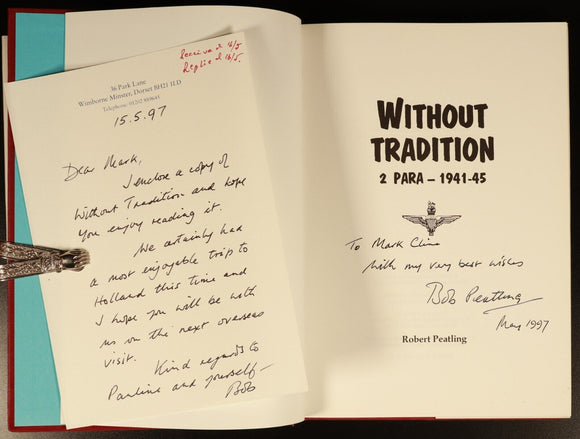 Received 16/5
Replied 16/5.
36 Park Lane
Wimborne Minster, Dorset BH21 1LD
15.5.97
Dear Mark,
I enclose a copy of
Without Tradition and hope
you enjoy reading it.
We certainly had
a most enjoyable trip to
Holland this time and
I hope you will be with
us on the next overseas
visit.
Kind regards to
Pauline and yourself –
Bob
WITHOUT
TRADITION
2 PARA – 1941-45
To Mark
with my very best wishes
Bob Peatling
May 1997
Robert Peatling